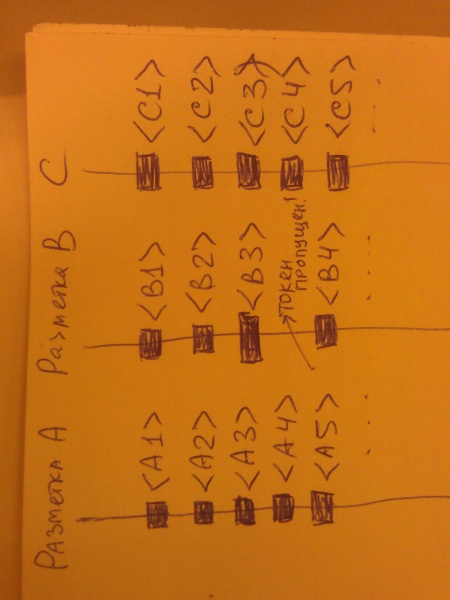 Разметка A Разметка B C
<A1> <B1> <C1>
<A2> <B2> <C2>
<A3> <B3> <C3>
<A4> токен <C4>
пропущен!
<A5> <B4> <C5>
.... .... ....